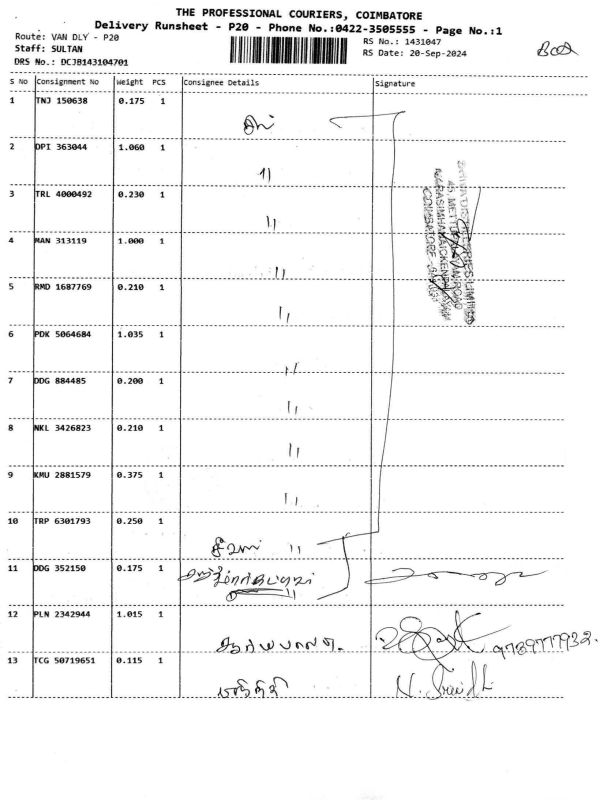 THE PROFESSIONAL COURIERS, COIMBATORE
Delivery Runsheet - P20 - Phone No.:0422-3505555 - Page No.:1
Route: VAN DLY - P20
Staff: SULTAN
DRS No.: DCJB143104701
RS No.: 1431047
RS Date: 20-Sep-2024
S No Consignment No Weight PCS Consignee Details Signature
1 TNJ 150638 0.175 1
2 DPI 363044 1.060 1 11
3 TRL 4000492 0.230 1 11
4 MAN 313119 1.000 1 11
5 RMD 1687769 0.210 1 11
6 PDK 5064684 1.035 1 11
7 DDG 884485 0.200 1 11
8 NKL 3426823 0.210 1 11
9 KMU 2881579 0.375 1 11
10 TRP 6301793 0.250 1 11
11 DDG 352150 0.175 1 11
12 PLN 2342944 1.015 1
13 TCG 50719651 0.115 1